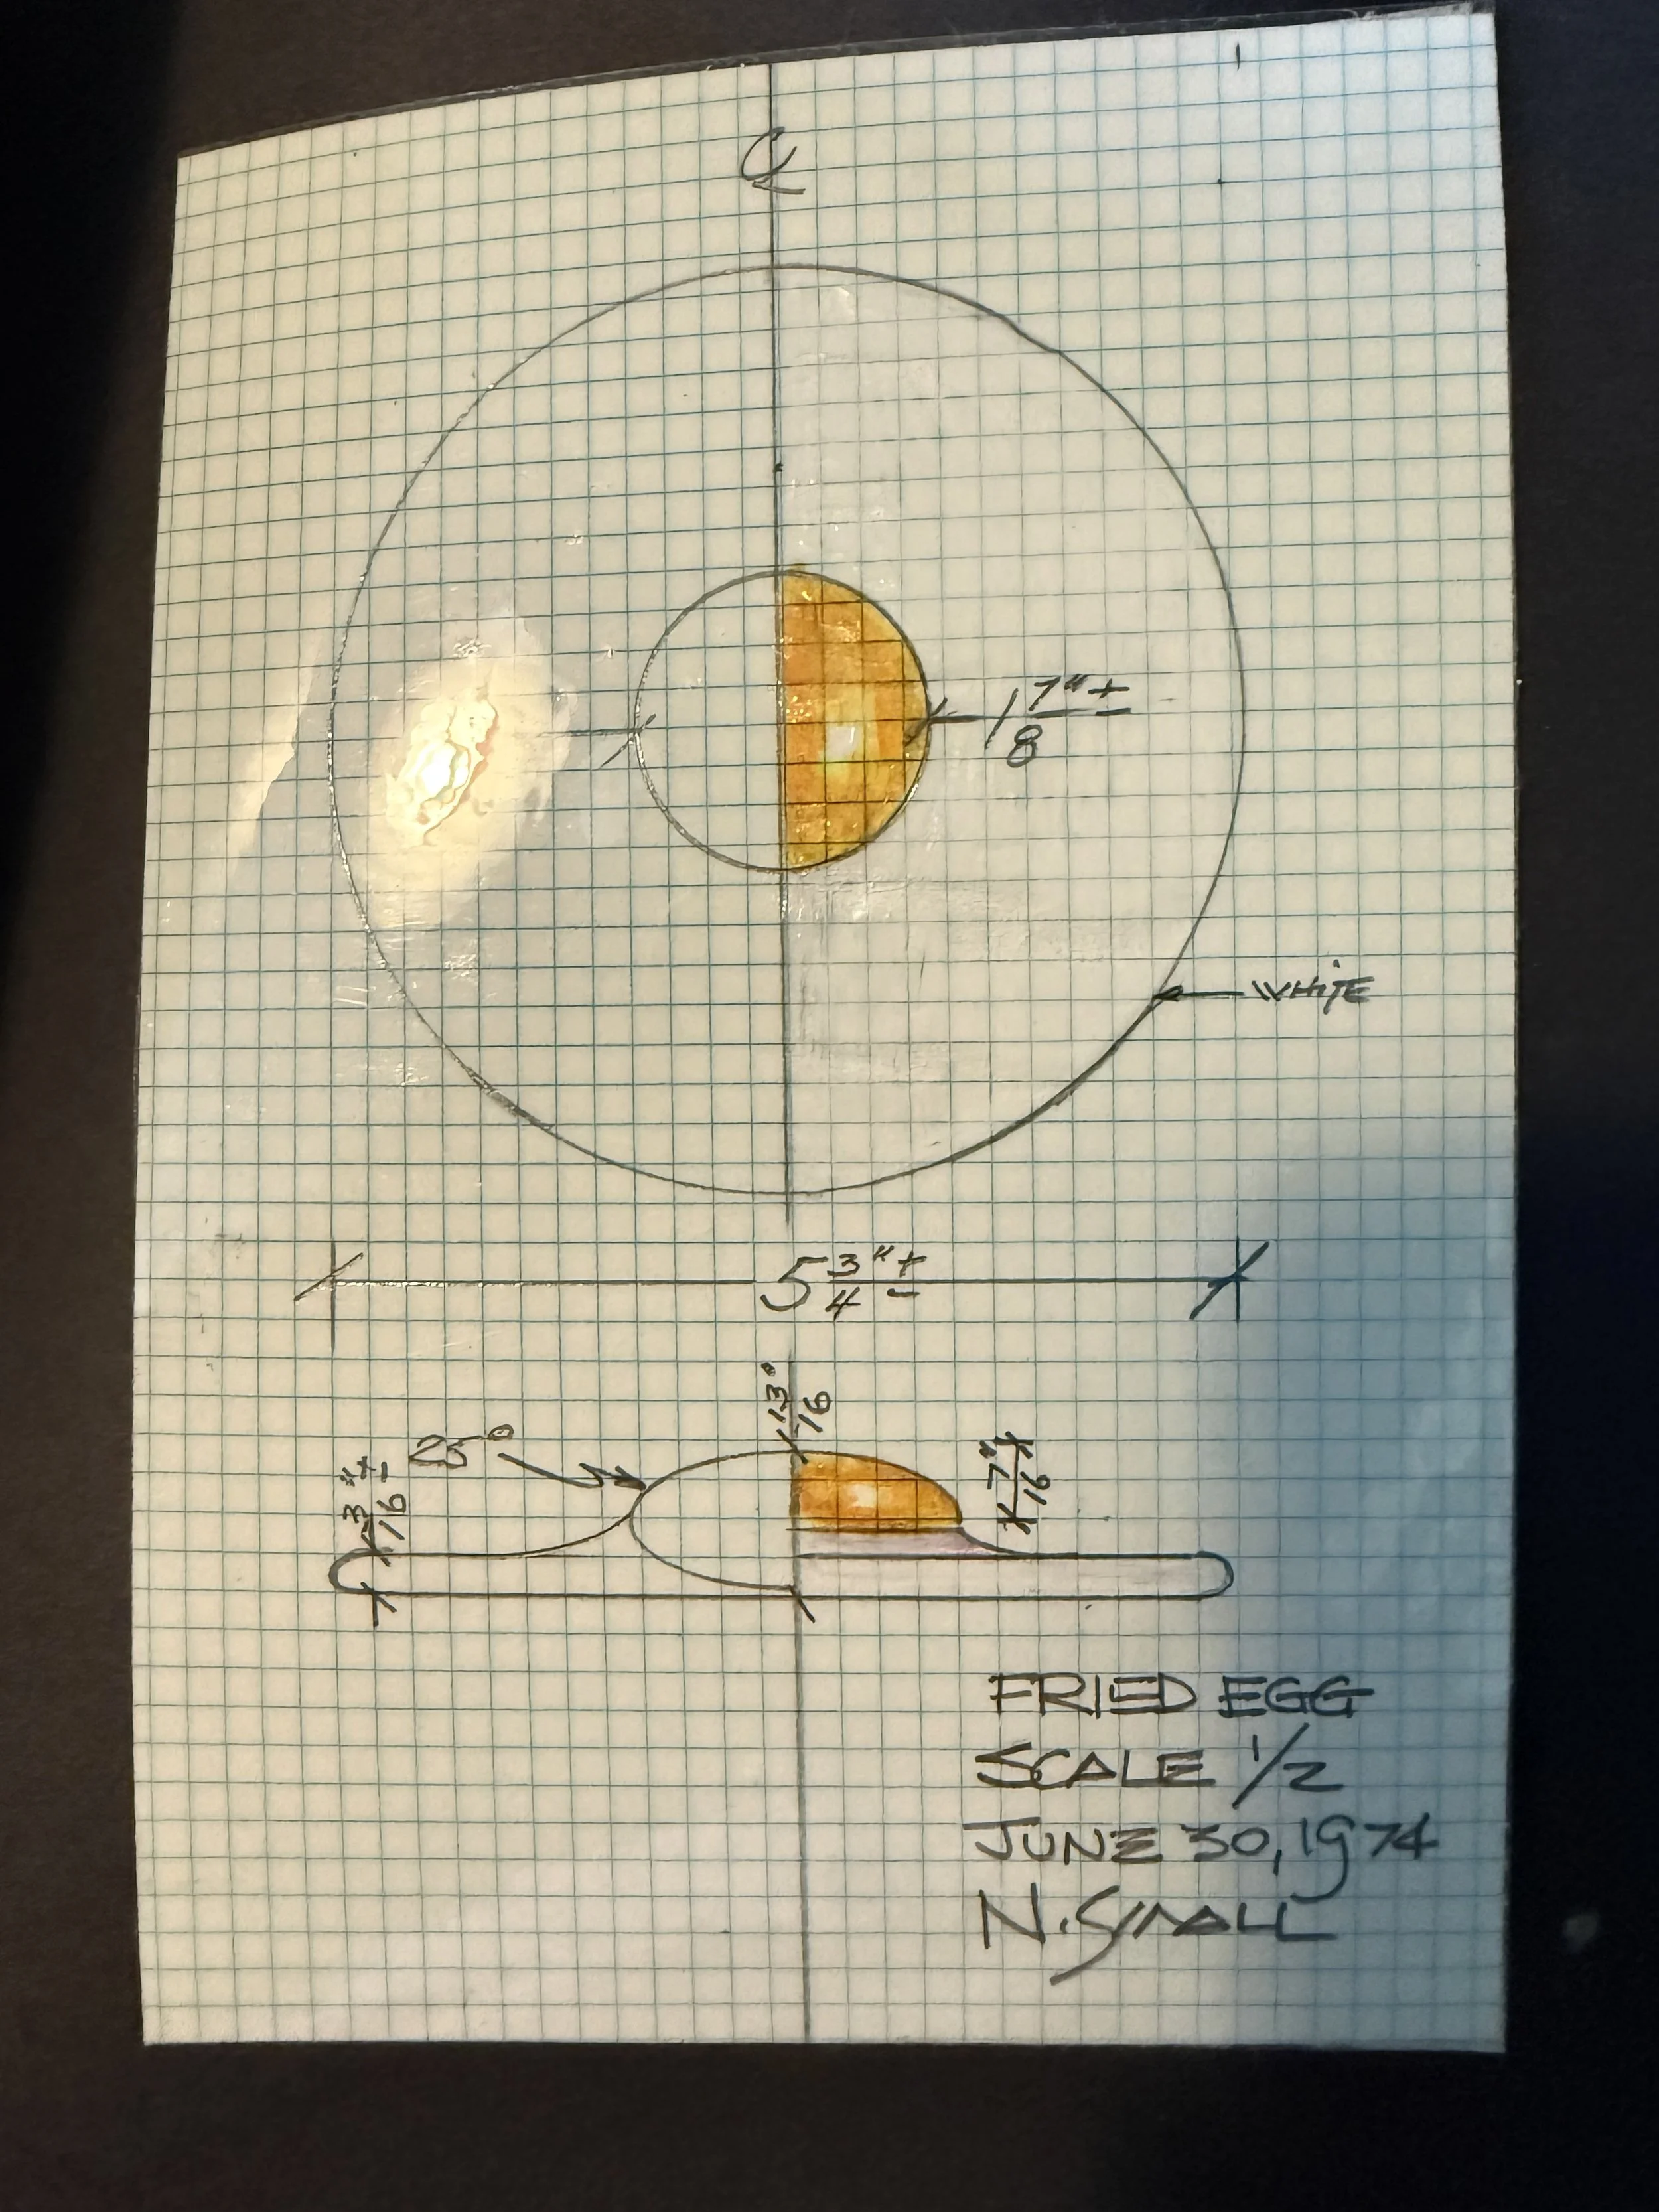 ℄
1 7/8" ±
WHITE
5 3/4" ±
13/16"
7/16"
3/16" ±
FRIED EGG
SCALE 1/2
JUNE 30, 1974
N. SMALL